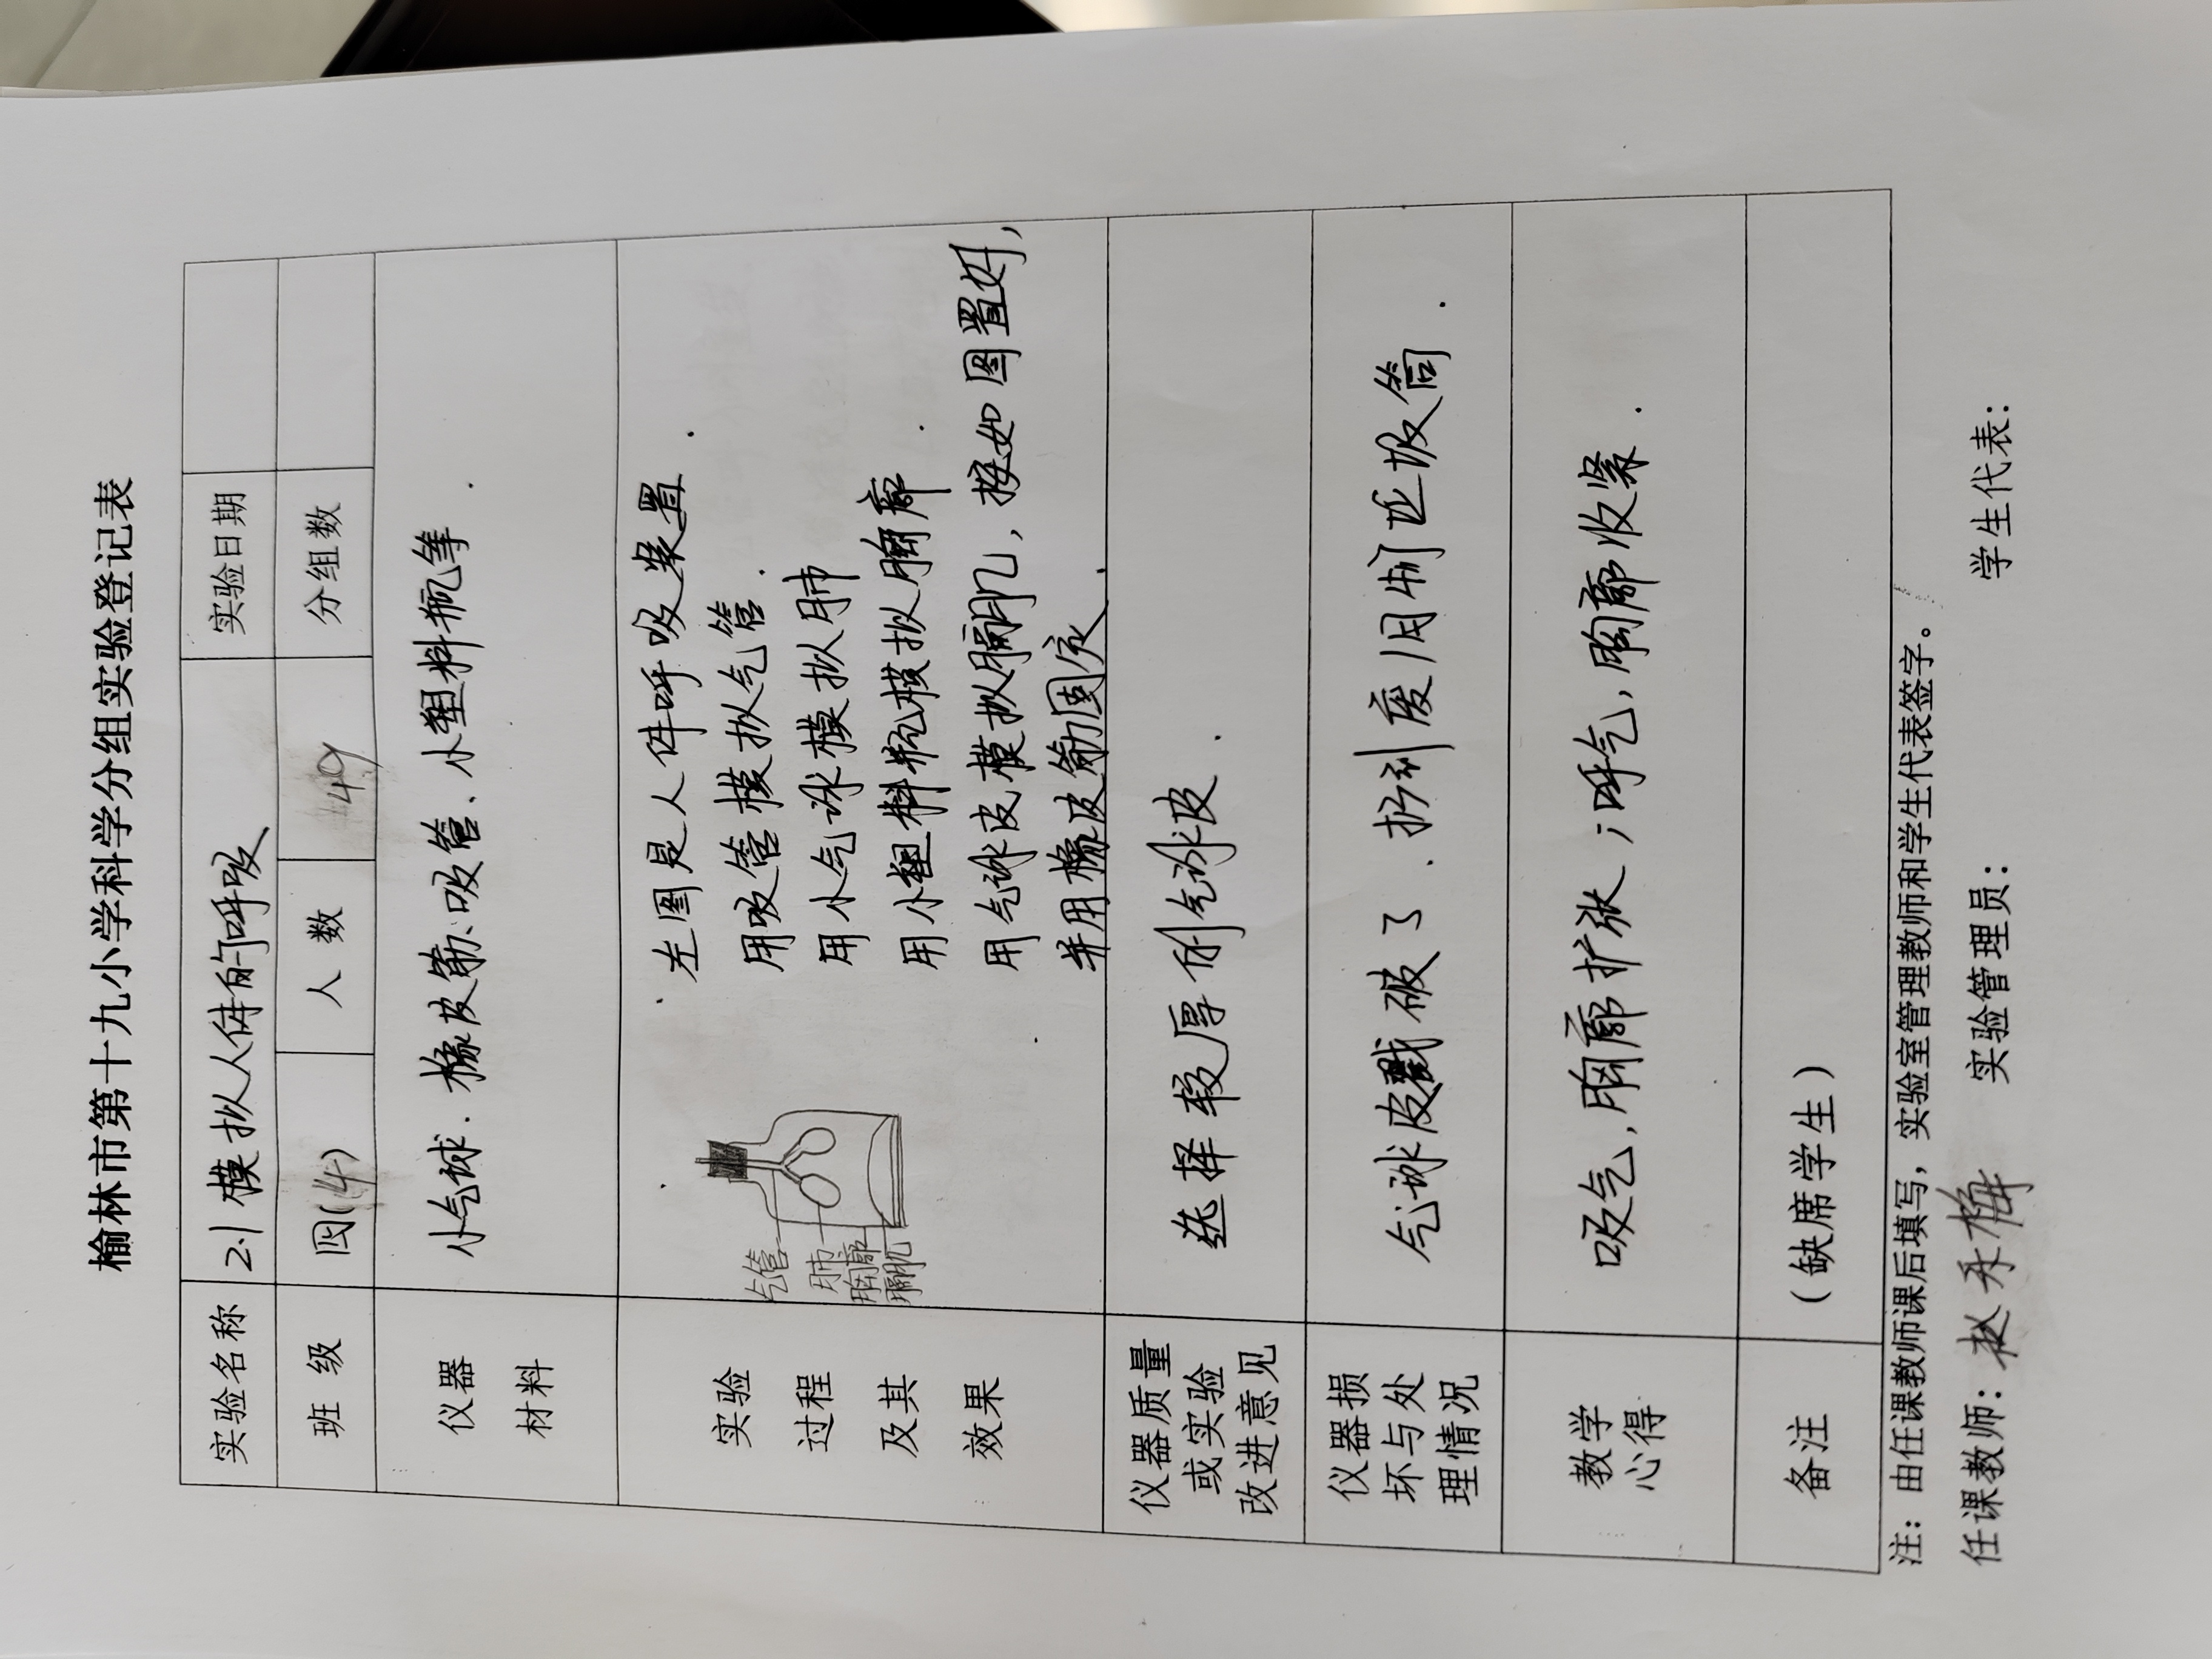 榆林市第十九小学科学分组实验登记表
实验名称 2.1 模拟人体的呼吸 实验日期
班级 四(4) 人数 49 分组数
仪器
材料
小气球、橡皮筋、吸管、小塑料瓶等.
实验
过程
及其
效果
气管
肺
胸廓
膈肌
左图是人体呼吸装置.
用吸管模拟气管.
用小气球模拟肺
用小塑料瓶模拟胸廓.
用气球皮模拟膈肌, 按如图置好,
并用橡皮筋固定.
仪器质量
或实验
改进意见
选择较厚的气球皮.
仪器损
坏与处
理情况
气球皮戳破了. 扔到废旧物垃圾筒.
教学
心得
吸气, 胸廓扩张; 呼气, 胸廓收紧.
备注
(缺席学生)
注：由任课教师课后填写，实验室管理教师和学生代表签字。
任课教师： 实验管理员： 学生代表：